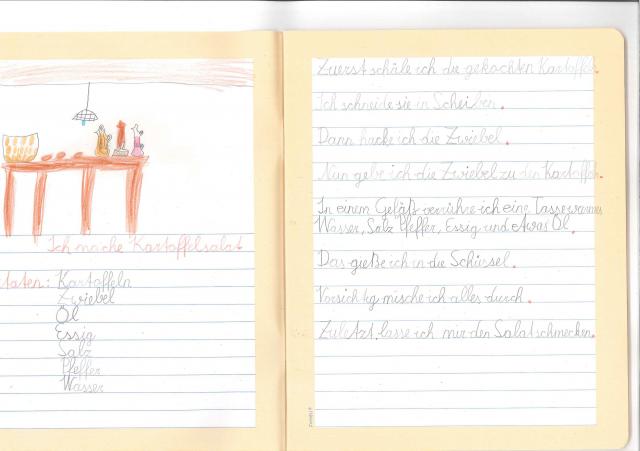 Ich mache Kartoffelsalat
taten: Kartoffeln
Zwiebel
Öl
Essig
Salz
Pfeffer
Wasser
Zuerst schäle ich die gekochten Kartoffeln.
Ich schneide sie in Scheiben.
Dann hacke ich die Zwiebel.
Nun gebe ich die Zwiebel zu den Kartoffeln.
In einem Gefäß verrühre ich eine Tasse warmes
Wasser, Salz Pfeffer, Essig und etwas Öl.
Das gieße ich in die Schüssel.
Vorsichtig mische ich alles durch.
Zuletzt lasse ich mir den Salat schmecken.